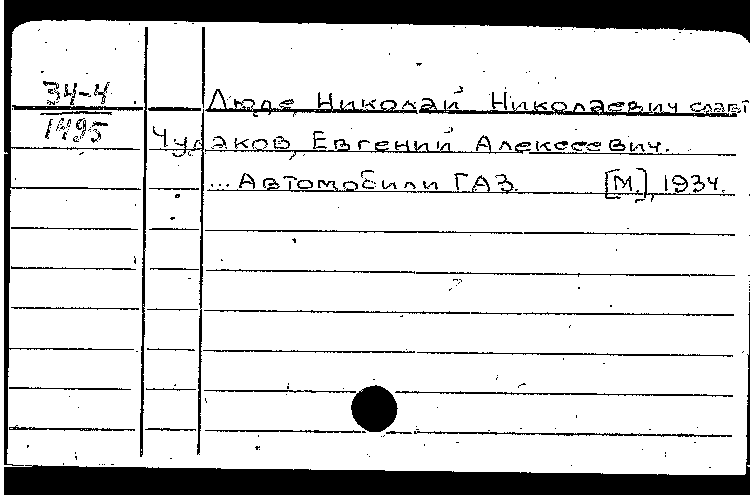 34-4
1495
Люде, Николай Николаевич
Чудаков, Евгений Алексеевич.
...Автомобили ГАЗ. [М.], 1934.